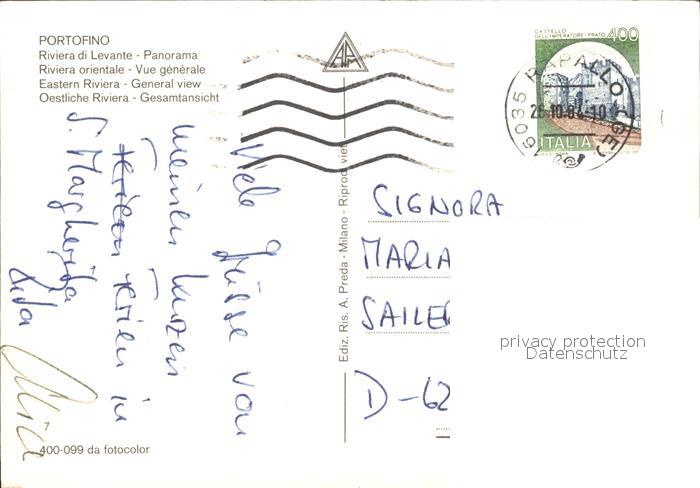 PORTOFINO
Riviera di Levante - Panorama
Riviera orientale - Vue générale
Eastern Riviera - General view
Oestliche Riviera - Gesamtansicht
CASTELLO
DELL'IMPERATORE - PRATO 400
ITALIA
16035 RAPALLO (GE)
Viele Grüsse von
meinen kurzen
Ferien in
S. Margherita
Ediz. Ris. A. Preda - Milano - Riprod. viet.
SIGNORA
MARIA
SAILER
D-62
privacy protection
Datenschutz
400-099 da fotocolor